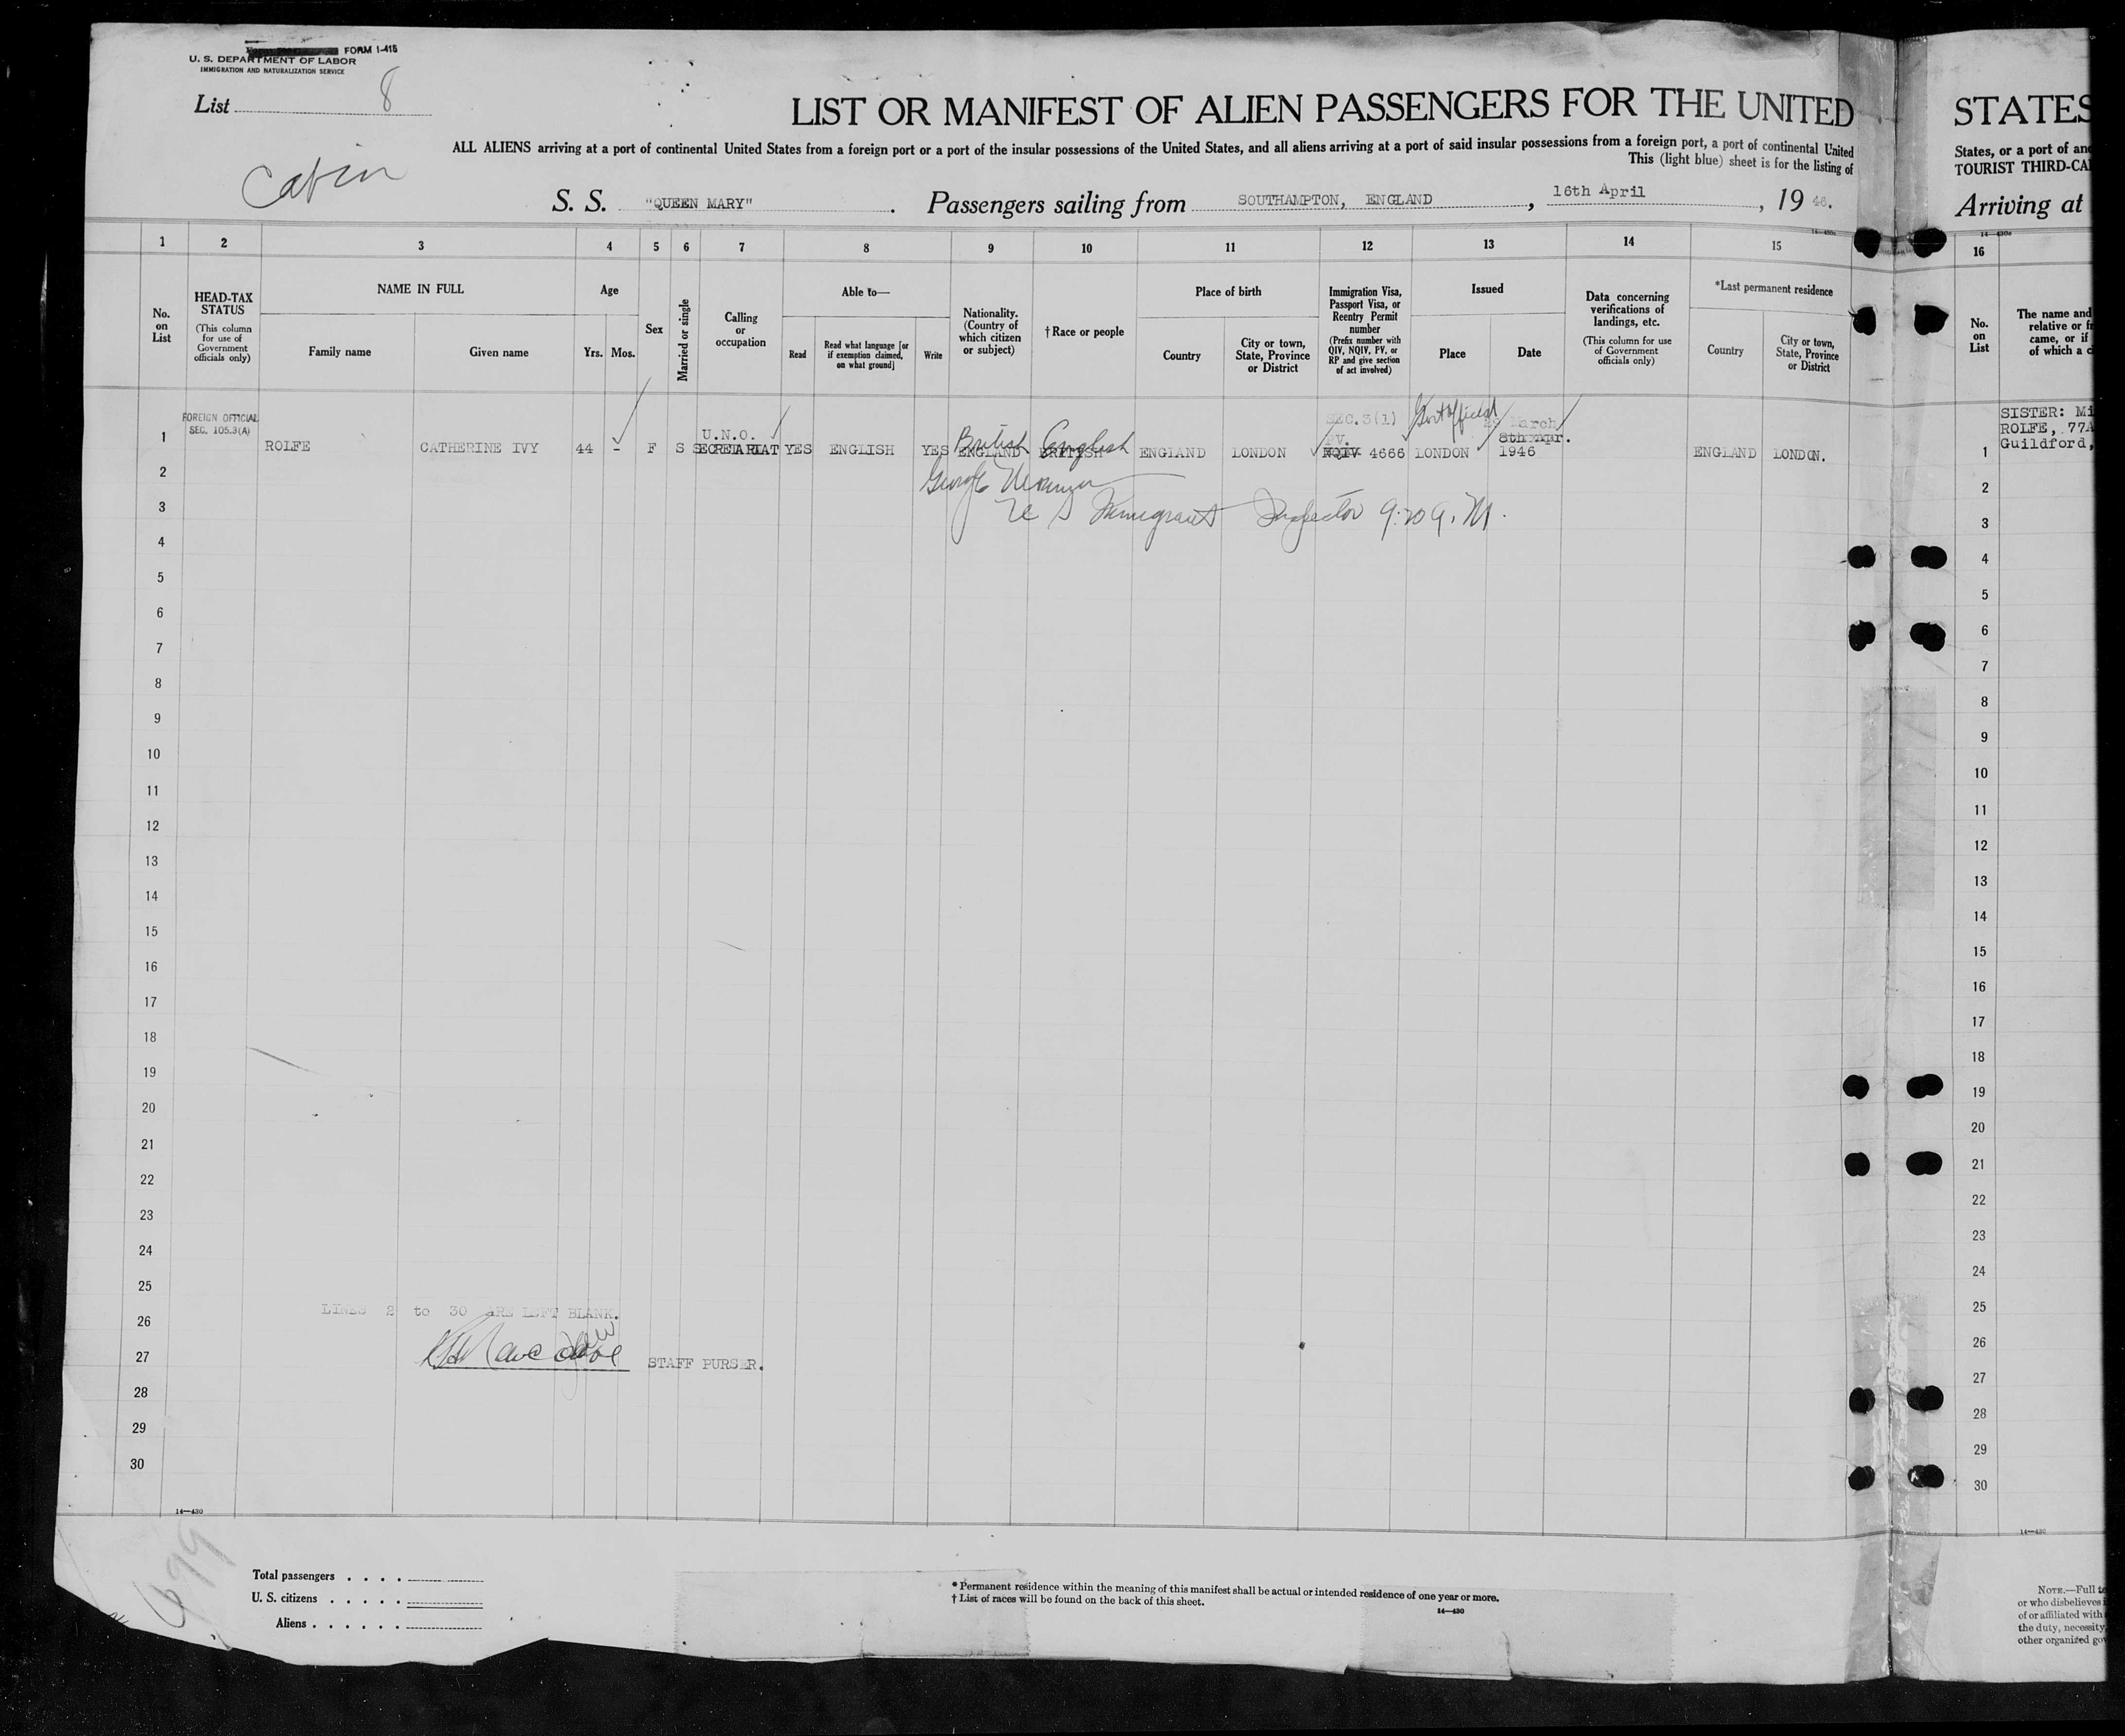 FORM 1-415
U. S. DEPARTMENT OF LABOR
IMMIGRATION AND NATURALIZATION SERVICE
List 8
Cabin
LIST OR MANIFEST OF ALIEN PASSENGERS FOR THE UNITED
ALL ALIENS arriving at a port of continental United States from a foreign port or a port of the insular possessions of the United States, and all aliens arriving at a port of said insular possessions from a foreign port, a port of continental United
This (light blue) sheet is for the listing of
S. S. "QUEEN MARY". Passengers sailing from SOUTHAMPTON, ENGLAND, 16th April, 19 46.
1 2 3 4 5 6 7 8 9 10 11 12 13 14 15
No. on List
HEAD-TAX STATUS
(This column for use of Government officials only)
NAME IN FULL
Family name
Given name
Age
Yrs. Mos.
Sex
Married or single
Calling or occupation
Able to—
Read
Read what language [or if exemption claimed, on what ground]
Write
Nationality. (Country of which citizen or subject)
†Race or people
Place of birth
Country
City or town, State, Province or District
Immigration Visa, Passport Visa, or Reentry Permit number
(Prefix number with QIV, NQIV, PV, or RP and give section of act involved)
Issued
Place
Date
Data concerning verifications of landings, etc.
(This column for use of Government officials only)
*Last permanent residence
Country
City or town, State, Province or District
FOREIGN OFFICIAL
SEC. 105.3(A)
SEC. 3(1) Govt official
U.N.O. British English PV. March 8th Apr.
1 ROLFE CATHERINE IVY 44 - F S SECRETARIAT YES ENGLISH YES ENGLAND BRITISH ENGLAND LONDON NQIV 4666 LONDON 1946 ENGLAND LONDON.
2 George
3 U S Immigrant Inspector 9:20 A.M.
4
5
6
7
8
9
10
11
12
13
14
15
16
17
18
19
20
21
22
23
24
25
LINES 2 to 30 ARE LEFT BLANK.
26
27 STAFF PURSER.
28
29
30
14—430
699
Total passengers
U. S. citizens
Aliens
* Permanent residence within the meaning of this manifest shall be actual or intended residence of one year or more.
† List of races will be found on the back of this sheet.
14—430
STATES
States, or a port of
TOURIST THIRD-
Arriving at
14—430
16
No. on List
The name and
relative or
came, or if
of which a
SISTER:
ROLFE, 77A
Guildford,
1
2
3
4
5
6
7
8
9
10
11
12
13
14
15
16
17
18
19
20
21
22
23
24
25
26
27
28
29
30
14—430
NOTE.—Full
or who disbelieves
of or affiliated with
the duty, necessity
other organized